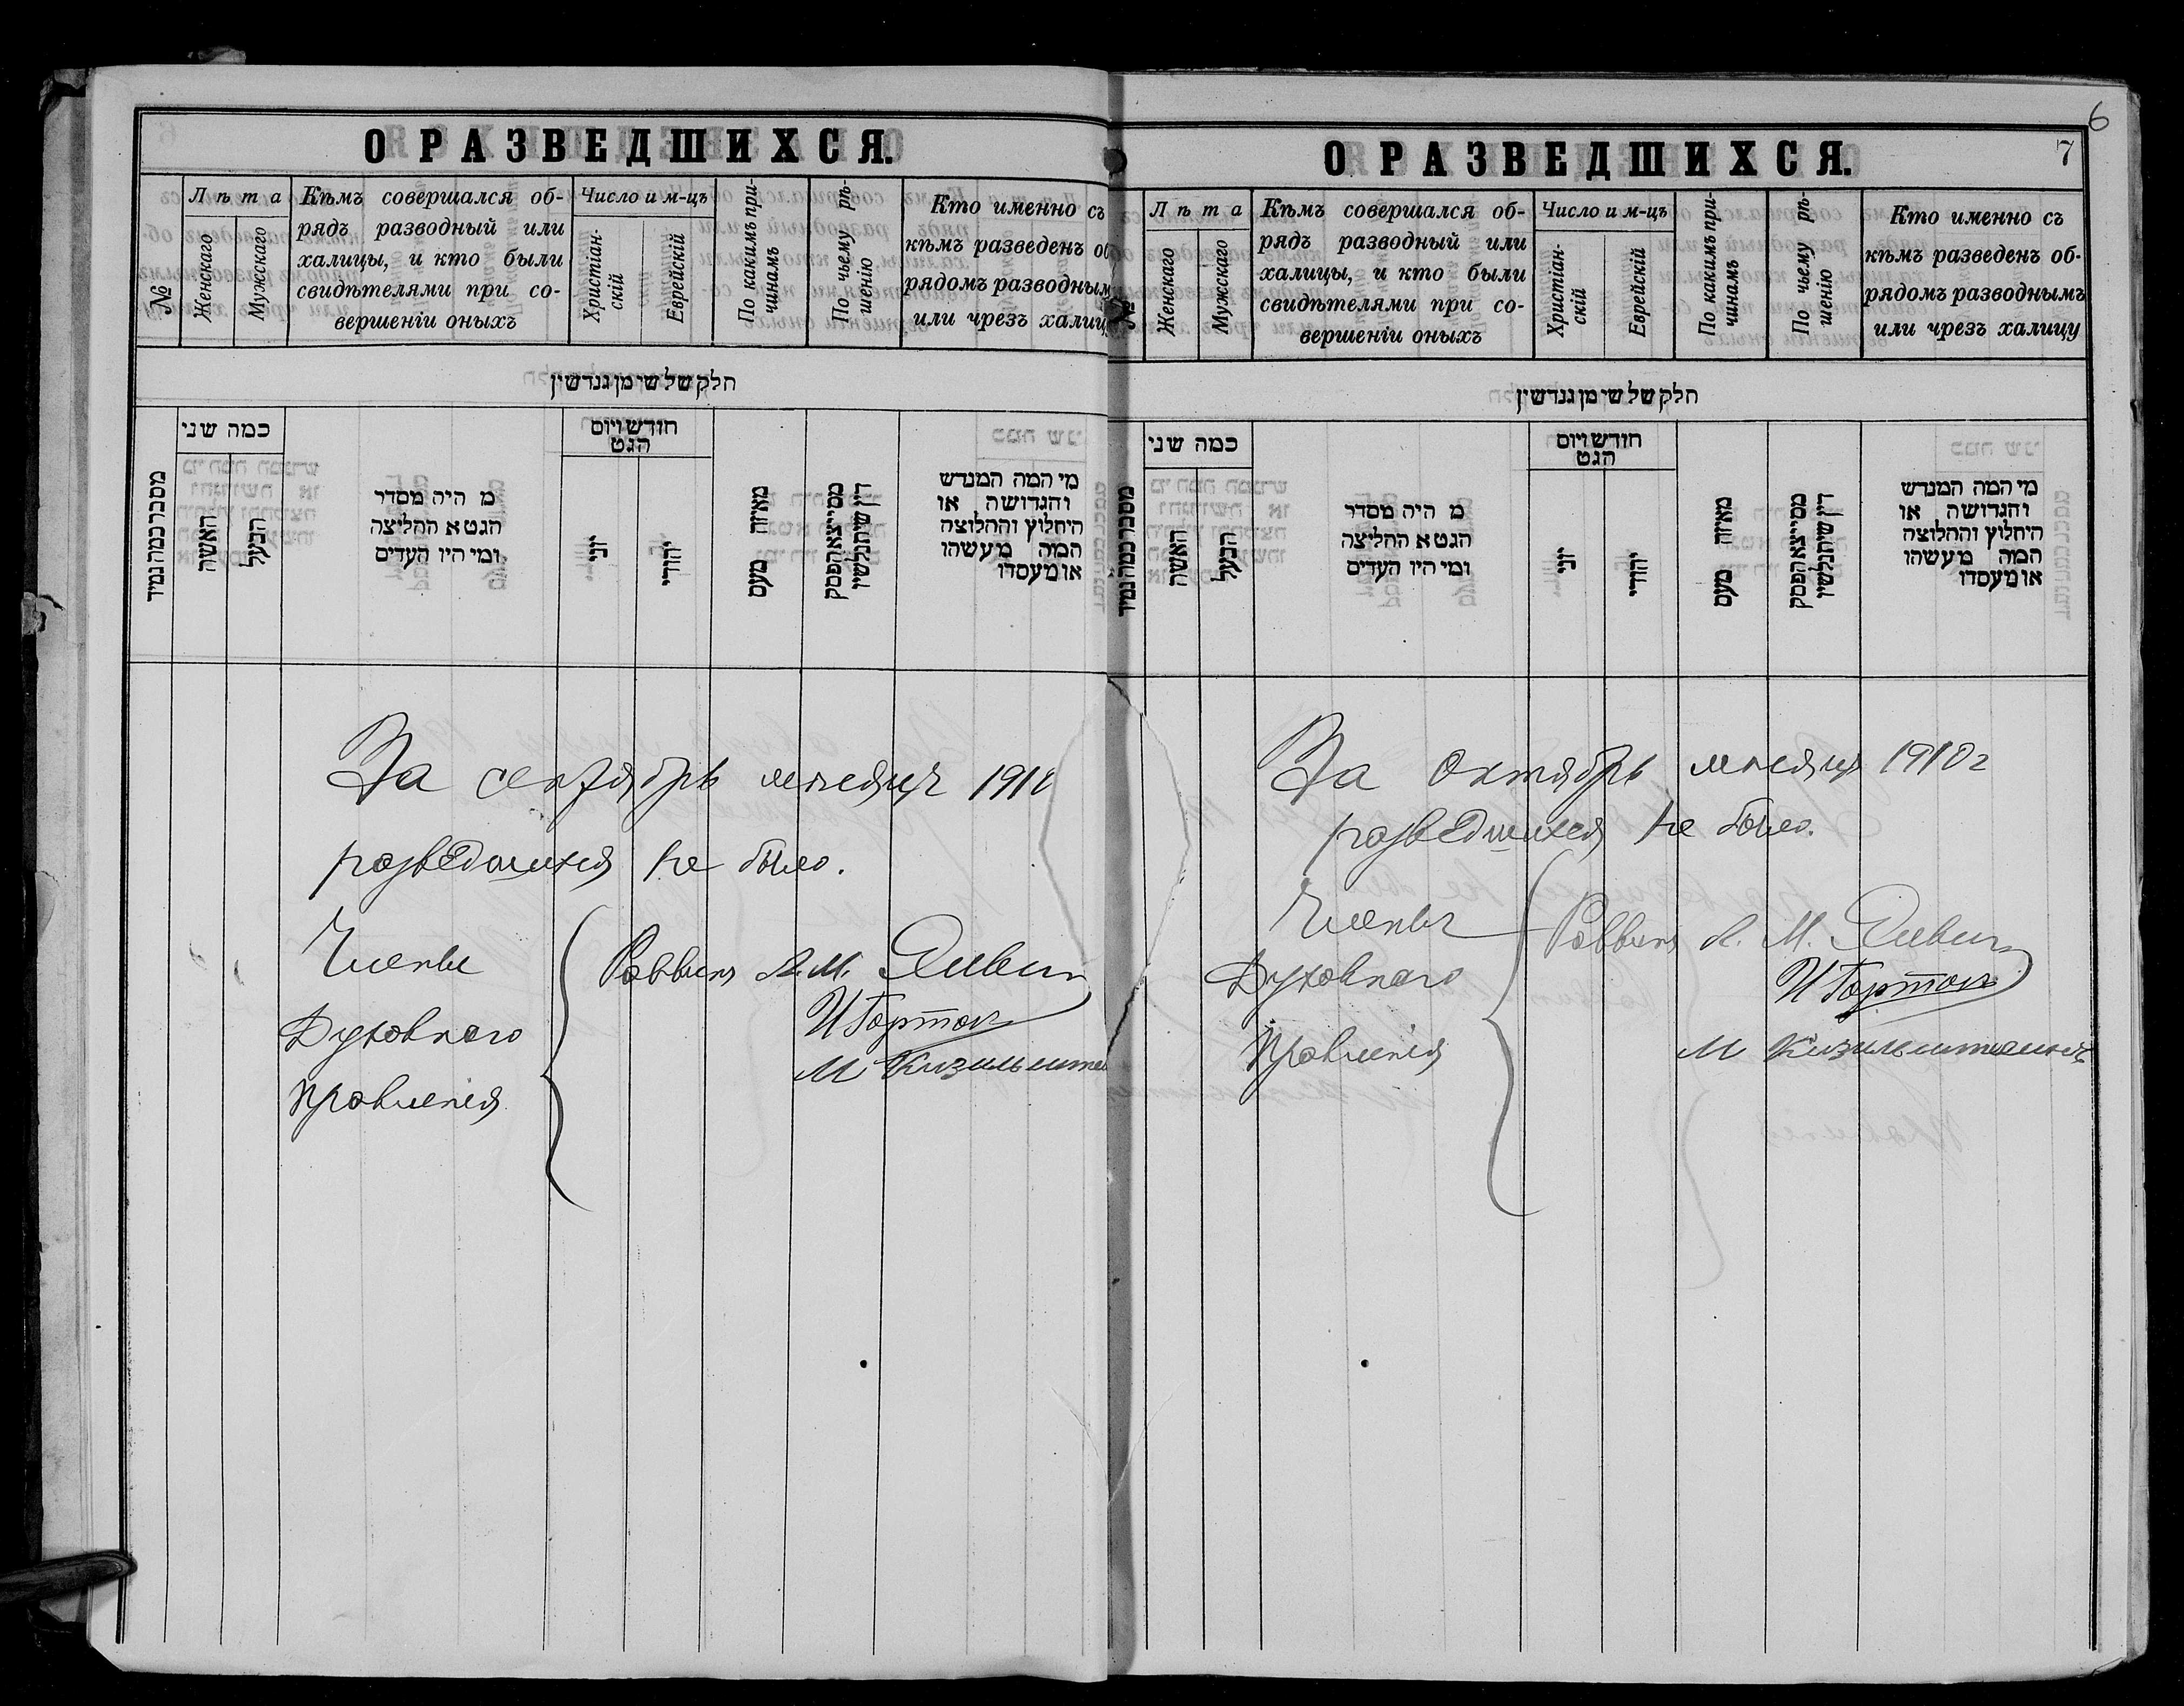 О РАЗВЕДШИХСЯ.
№
Лѣта
Женскаго
Мужскаго
Кѣмъ совершался об-
рядъ разводный или
халицы, и кто были
свидѣтелями при со-
вершеніи оныхъ
Число и м-цъ
Христіан-
скій
Еврейскій
По какимъ при-
чинамъ
По чьему рѣ-
шенію
Кто именно съ
кѣмъ разведенъ об
рядомъ разводным
или чрезъ халиц
חלק של שי מן גנדשין
כמה שני
האשה
הבעל
מ היה מסדר
הגט א החליצה
ומי היו העדים
חודש ויום
הגט
יוני
יהודי
מאיזה טעם
מי המה המגדש
והגדושה או
היחלוץ והחלוצה
המה מעשהו
או מעסדו
За сентябрь мѣсяцъ 191
разведшихся не было.
Члены
Духовнаго
Правленія
Раввинъ Л. М.
И Гортон
М Кизильште
6
7
О РАЗВЕДШИХСЯ.
№
Лѣта
Женскаго
Мужскаго
Кѣмъ совершался об-
рядъ разводный или
халицы, и кто были
свидѣтелями при со-
вершеніи оныхъ
Число и м-цъ
Христіан-
скій
Еврейскій
По какимъ при-
чинамъ
По чьему рѣ-
шенію
Кто именно съ
кѣмъ разведенъ об-
рядомъ разводнымъ
или чрезъ халицу
חלק של שי מן גנדשין
כמה שני
האשה
הבעל
מ היה מסדר
הגט א החליצה
ומי היו העדים
חודש ויום
הגט
יוני
יהודי
מאיזה טעם
מי המה המגדש
והגדושה או
היחלוץ והחלוצה
המה מעשהו
או מעסדו
За октябрь мѣсяцъ 1910 г
разведшихся не было.
Члены
Духовнаго
Правленія
Раввинъ Л. М.
И Гортон
М Кизильштейнъ